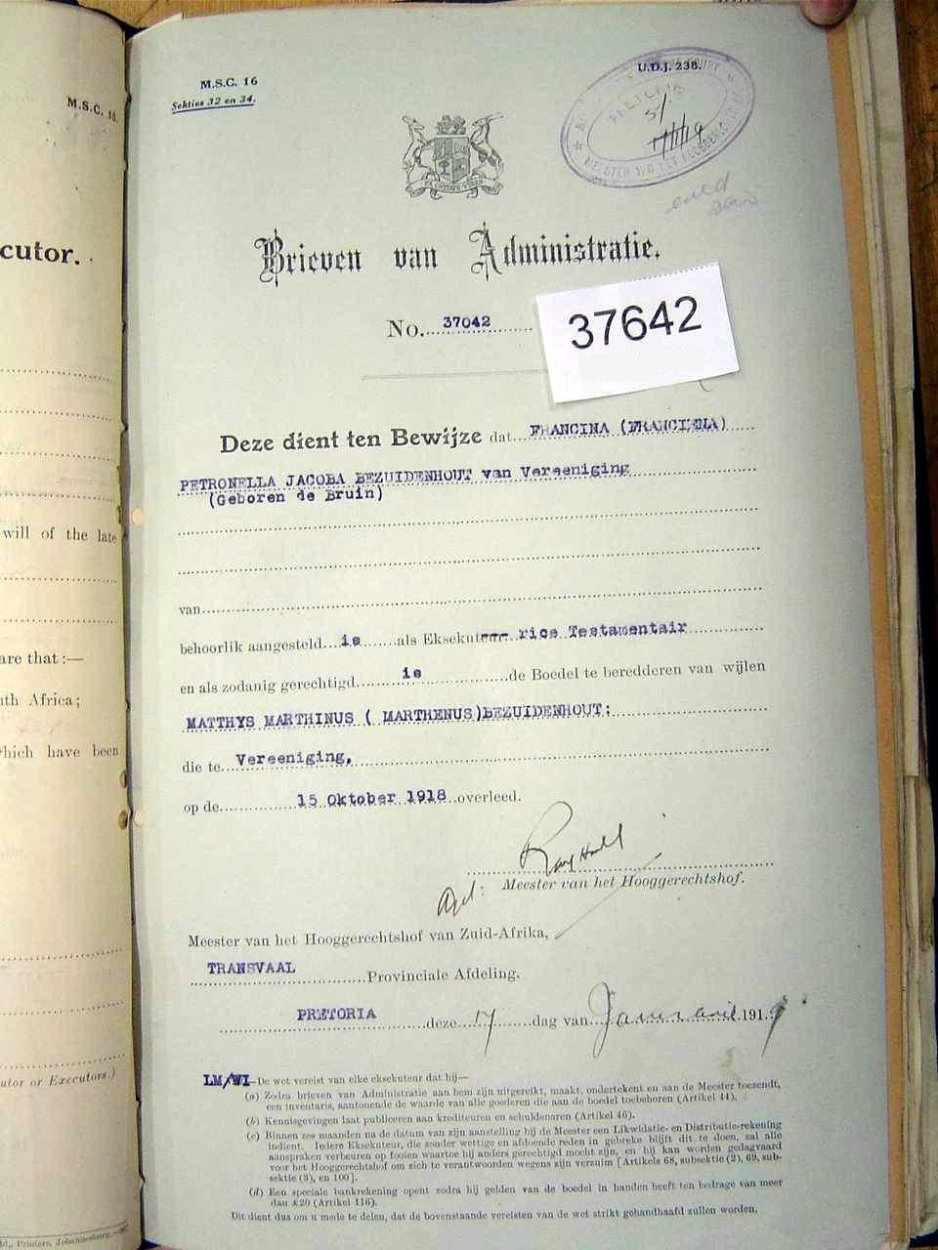 M.S.C. 16
Sekties 32 en 34.
U.D.J. 238.
17/1/19
Brieven van Administratie.
No. 37042
37642
Deze dient ten Bewijze dat FRANCINA (FRANCIENA)
PETRONELLA JACOBA BEZUIDENHOUT van Vereeniging
(Geboren de Bruin)
van
behoorlijk aangesteld is als Eksekuteur rice Testamentair
en als zodanig gerechtigd is de Boedel te beredderen van wijlen
MATTHYS MARTHINUS ( MARTHENUS)BEZUIDENHOUT:
die te Vereeniging,
op de 15 Oktober 1918 overleed.
Meester van het Hooggerechtshof.
Meester van het Hooggerechtshof van Zuid-Afrika,
TRANSVAAL Provinciale Afdeling.
PRETORIA deze 17 dag van Januarie 1919
LM/WI—De wet vereist van elke eksekuteur dat hij—
(a) Zodra brieven van Administratie aan hem zijn uitgereikt, maakt, ondertekent en aan de Meester toezendt,
een inventaris, aantonende de waarde van alle goederen die aan de boedel toebehoren (Artikel 44).
(b) Kennisgevingen laat publiceren aan krediteuren en schuldenaren (Artikel 46).
(c) Binnen zes maanden na de datum van zijn aanstelling bij de Meester een Likwidatie- en Distributie-rekening
indient. Iedere Eksekuteur, die zonder wettige en afdoende reden in gebreke blijft dit te doen, zal alle
aanspraken verbeuren op fooien waartoe hij anders gerechtigd mocht zijn, en hij kan worden gedagvaard
voor het Hooggerechtshof om zich te verantwoorden wegens zijn verzuim [Artikels 68, subsektie (2), 69, sub-
sektie (3), en 100].
(d) Een speciale bankrekening opent zodra hij gelden van de boedel in handen heeft ten bedrage van meer
dan £20 (Artikel 116).
Dit dient dus om u mede te delen, dat de bovenstaande vereisten van de wet strikt gehandhaafd zullen worden.
M.S.C.
cutor.
will of the late
are that :—
th Africa;
hich have been
utor or Executors.)
Printers, Johannesburg.